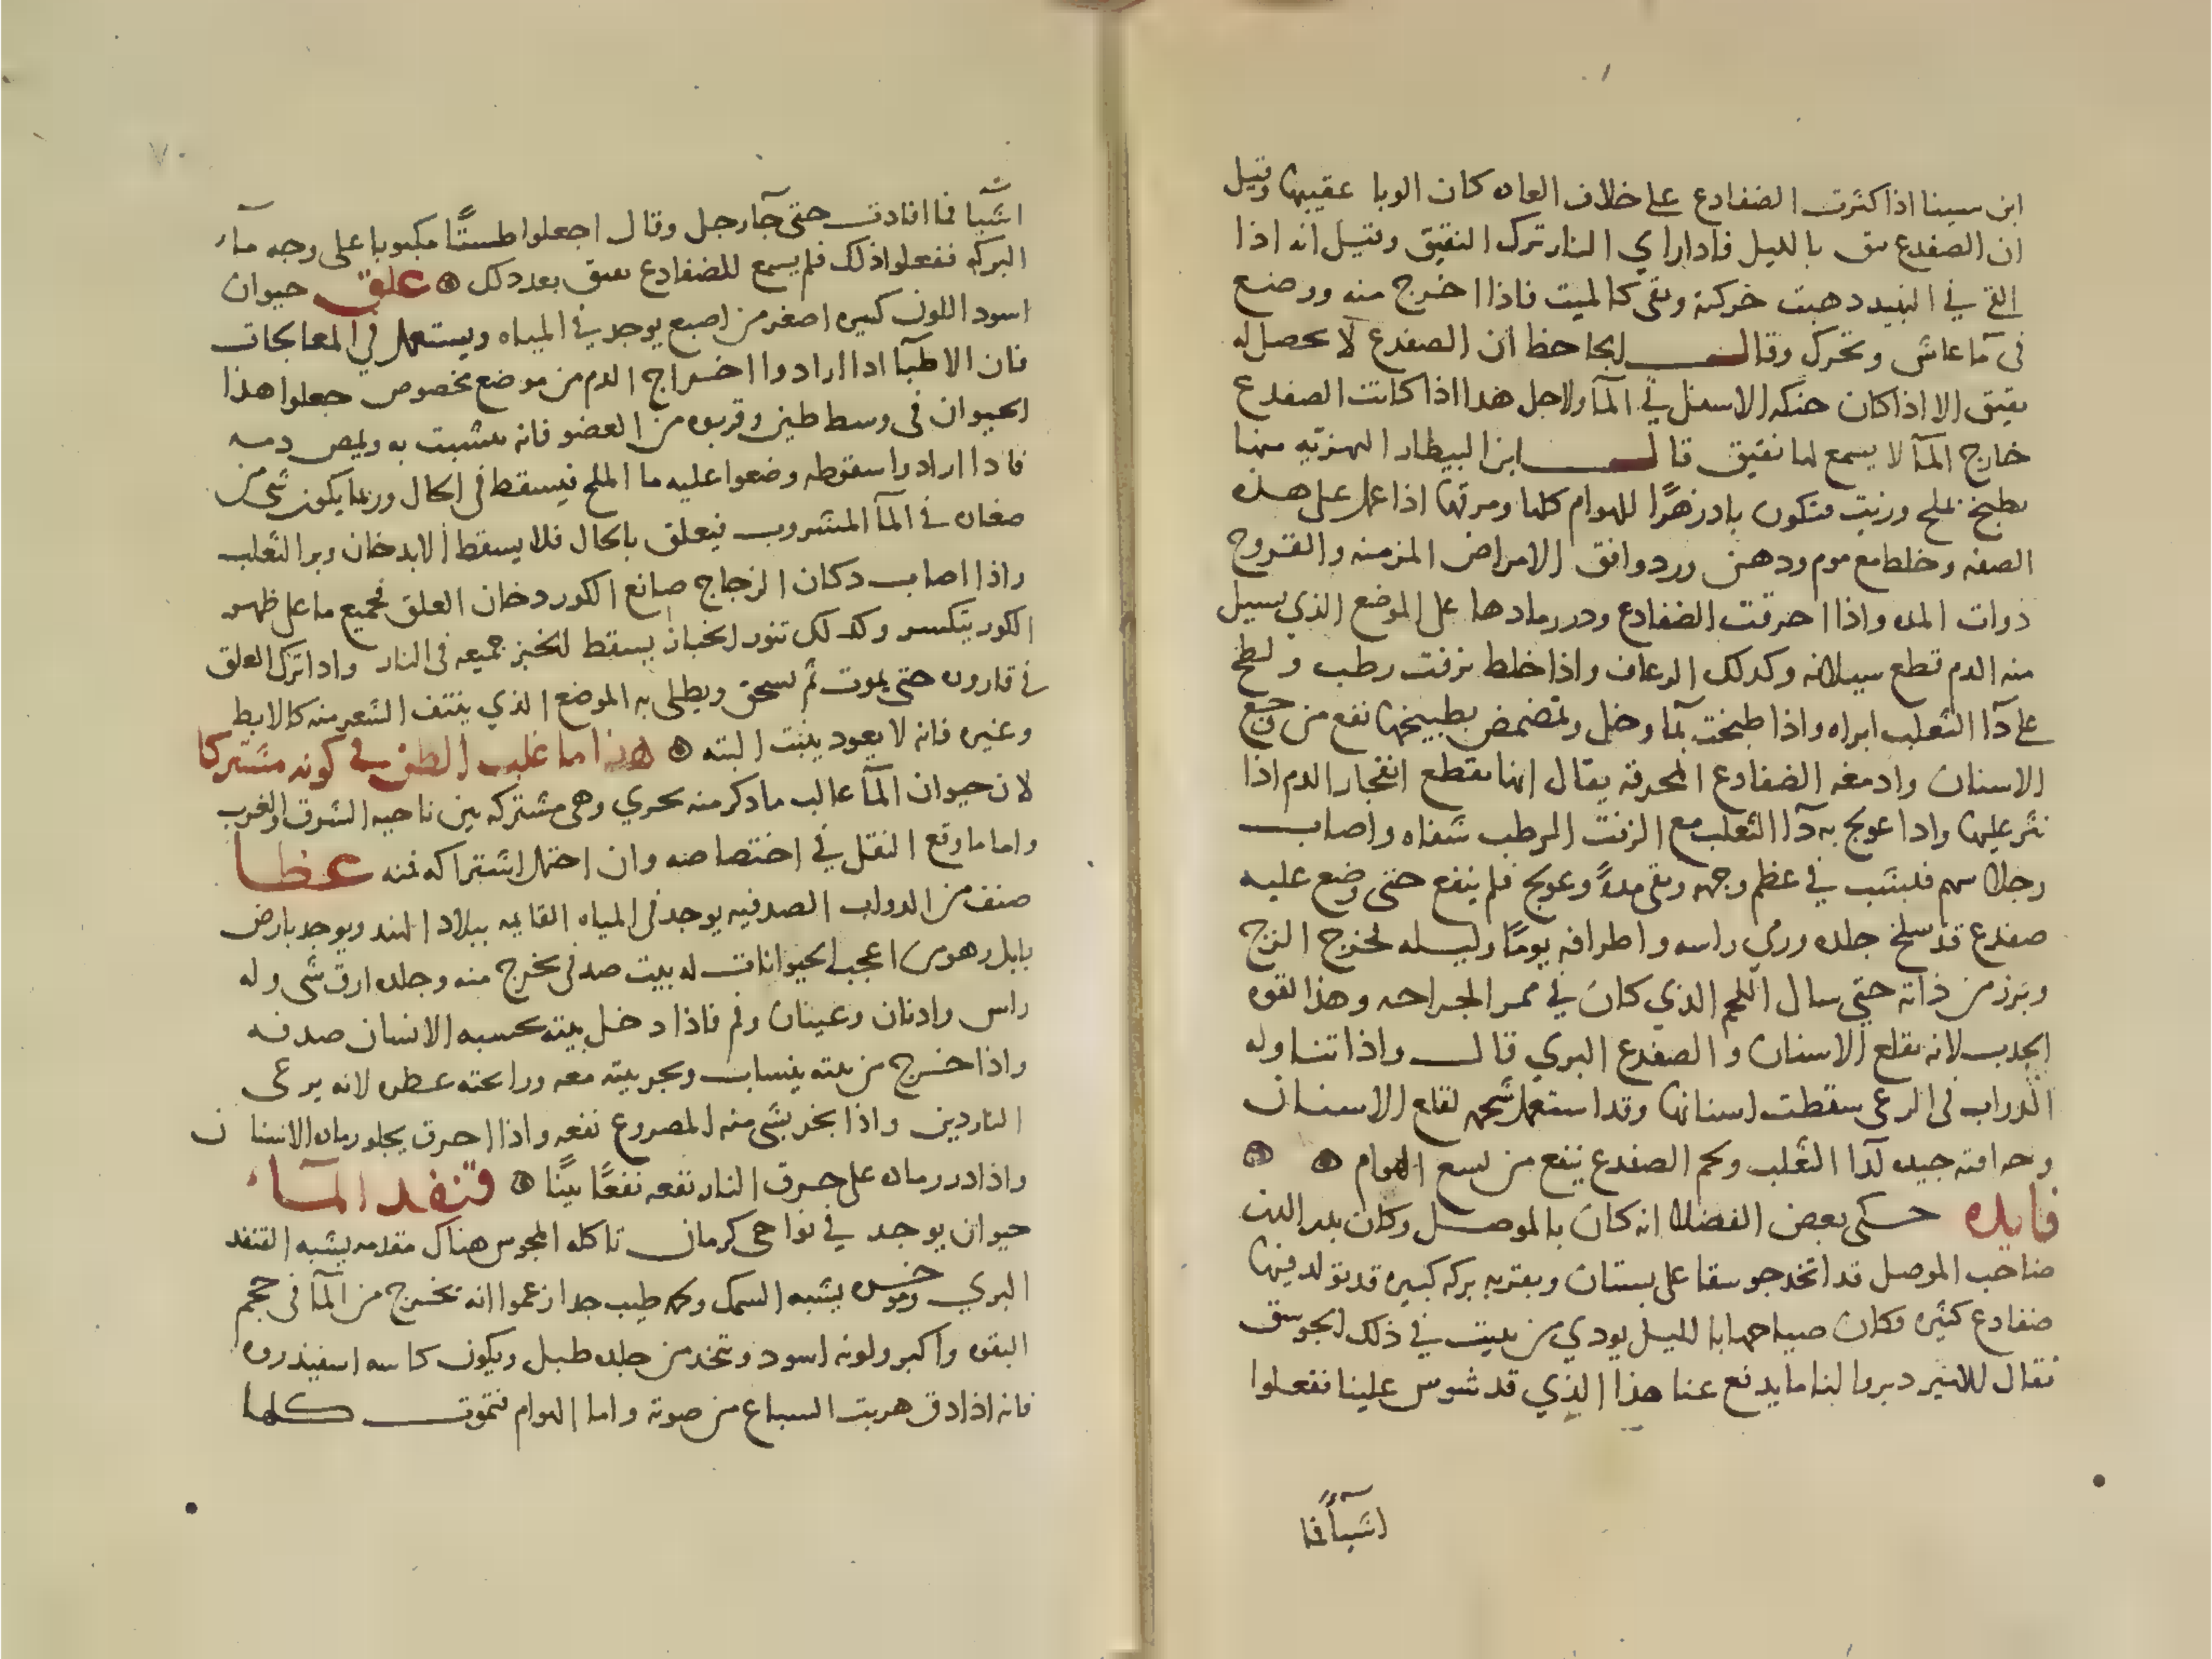 ابن سينا اذا كثرت الضفادع على خلاف العاده كان الوبا عقيبها وقيل
ان الضفدع ينق بالليل فاذا راى النار ترك النقيق وقيل انه اذا
القي في النبيذ ذهبت حركته وبقى كالميت فاذا اخرج منه ووضع
فى مآ عاش وتحرك وقال الجاحظ ان الضفدع لا يحصل له
نقيق الا اذا كان حنكه الاسفل في المآ ولاجل هذا اذا كانت الضفدع
خارج المآ لا يسمع لها نقيق قال ابن البيطار النهريه منها
يطبخ بملح وزيت فتكون بادزهرًا للهوام كلها ومرقها اذا عمل على هذه
الصفه وخلط مع موم ودهن ورد وافق الامراض المزمنه والقروح
ذوات المده واذا احرقت الضفادع وذر رمادها على الموضع الذي يسيل
منه الدم قطع سيلانه وكذلك الرعاف واذا خلط بزفت رطب ولطخ
على دآ الثعلب ابراه واذا طبخت بمآ وخل وتمضمض بطبيخها نفع من وجع
الاسنان وادمغه الضفادع المحرقه يقال انها تقطع انفجار الدم اذا
نثر عليها واذا عولج به دآ الثعلب مع الزفت الرطب شفاه واصاب
رجلا سهم فلبث في عظم وجهه وبقى مدةً وعولج فلم ينفع حتى وضع عليه
ضفدع قد سلخ جلده ورمي راسه واطرافه يومًا وليله فخرج الزج
وبرز من ذاته حتى سال اللحم الذي كان في ممر الجراحه وهذا لقوه
الجذب لانه يقلع الاسنان والضفدع البري قال واذا تناوله
الدواب فى الرعى سقطت اسنانها وقد استعمل شحمه لقلع الاسنان
وحرافته جيده لدآ الثعلب ولحم الضفدع ينفع من لسع الهوام
فايده حكى بعض الفضلا انه كان بالموصل وكان بدر الدين
صاحب الموصل قد اتخذ جوسقا على بستان وبقربه بركه كبيره قد تولد فيها
ضفادع كثيره فكان صياحها بالليل يوذي من يبيت في ذلك الجوسق
فقال للامير دبروا لنا ما يدفع عنا هذا الذي قد شوس علينا ففعلوا
اشيآ فما
٧٠
اشيآ فما افادت حتى جآ رجل وقال اجعلوا طستًا مكبوبا على وجه مآء
البركه ففعلوا ذلك فلم يسمع للضفادع نقيق بعد ذلك علق حيوان
اسود اللون كبيره اصغر من اصبع يوجد في المياه ويستعمل في المعالجات
فان الاطبآ اذا ارادوا اخراج الدم من موضع مخصوص جعلوا هذا
الحيوان فى وسط طين وقربوه من العضو فانه يتشبت به ويمص دمه
فاذا ارادوا سقوطه وضعوا عليه ما الملح فيسقط فى الحال وربما يكون شى من
صغاره في المآ المشروب فيعلق بالحال فلا يسقط الا بدخان وبر الثعلب
واذا اصاب دكان الزجاج صانع الكور دخان العلق فجميع ما على ظهر
الكور يتكسر وكذلك تنور الخباز يسقط الخبز جميعه فى النار واذا ترك العلق
في قاروره حتى يموت ثم يسحق ويطلى به الموضع الذي ينتف الشعر منه كالابط
وغيره فانه لا يعود ينبت البته هذا ما غلب الظن في كونه مشتركا
لان حيوان المآ غالب ما ذكر منه بحري وهى مشتركه بين ناحيه الشرق والغرب
واما ما وقع النقل في اختصاصه وان احتمل اشتراكه فمنه عظا
صنف من الدواب الصدفيه يوجد فى المياه القايمه ببلاد الهند ويوجد بارض
بابل وهو من اعجب الحيوانات له بيت صدفى يخرج منه وجلده ارق شى وله
راس واذنان وعينان وفم فاذا دخل بيته يحسبه الانسان صدفه
واذا خرج من بيته ينساب ويجر بيته معه ورائحته عطره لانه يرعى
الناردين واذا بخر بشى منه المصروع نفعه واذا احرق يجلو رماده الاسنان
واذا ذر رماده على حرق النار نفعه نفعًا بينًا قنفد المآء
حيوان يوجد في نواحى كرمان تاكله المجوس هناك مقدمه يشبه القنفد
البري وموخره يشبه السمك ولحمه طيب جدا زعموا انه يخرج من المآ فى حجم
البقره واكبر ولونه اسود ويتخذ من جلده طبل ويكون كاسه اسفيذروه
فانه اذا دق هربت السباع من صوته واما الهوام فتموت كلها